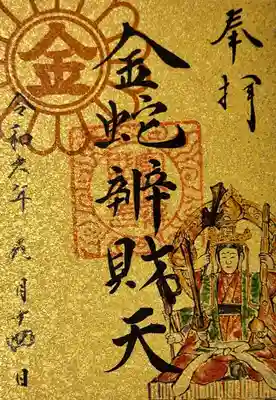 奉拝
金蛇辨財天
令和六年 元月十四日
金